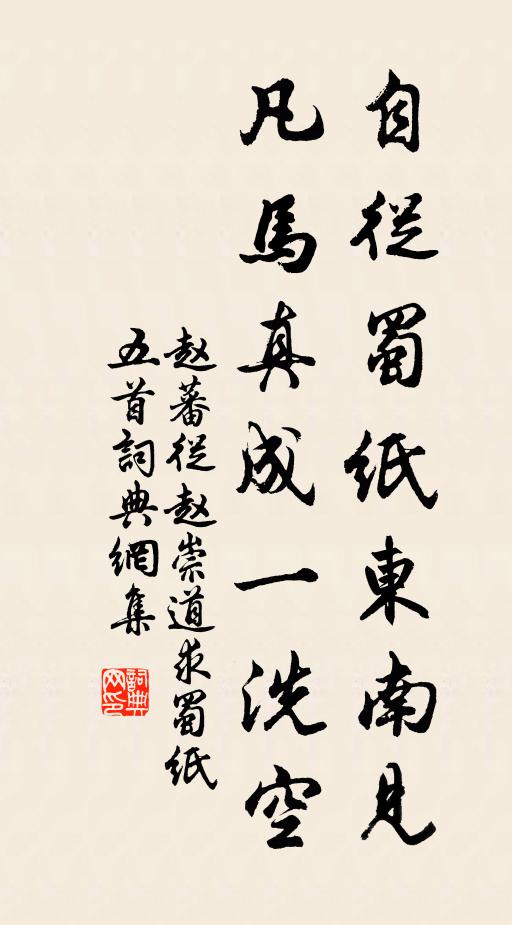 自從蜀紙東南見
凡馬真成一洗空
赵蕃從赵崇道求蜀紙
五首詞典網集
詞典网印